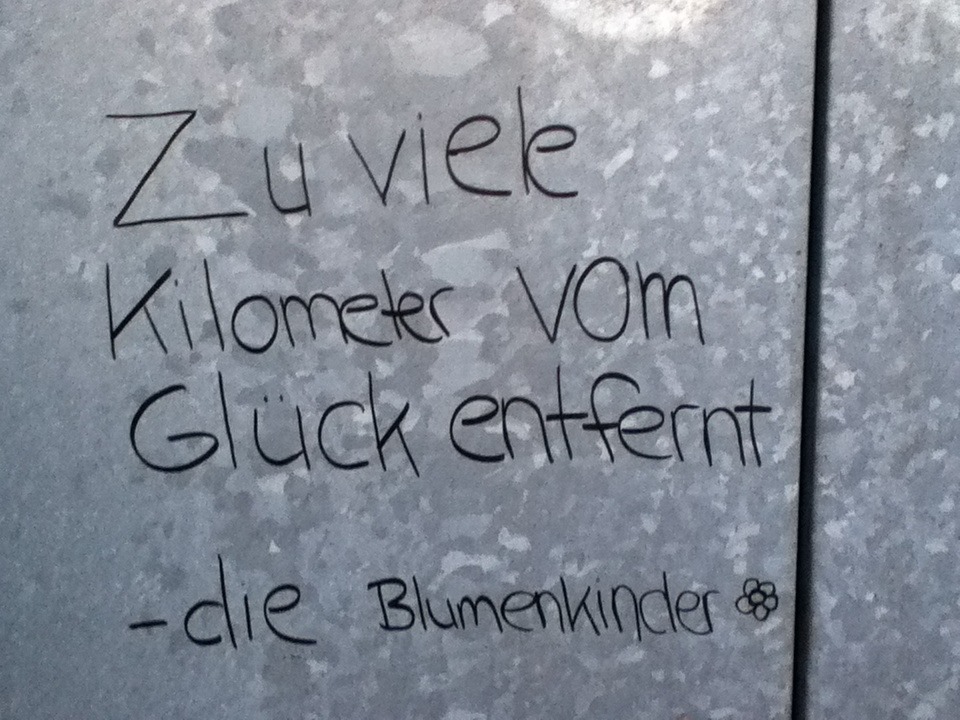 Zu viele
Kilometer vom
Glück entfernt
-die Blumenkinder